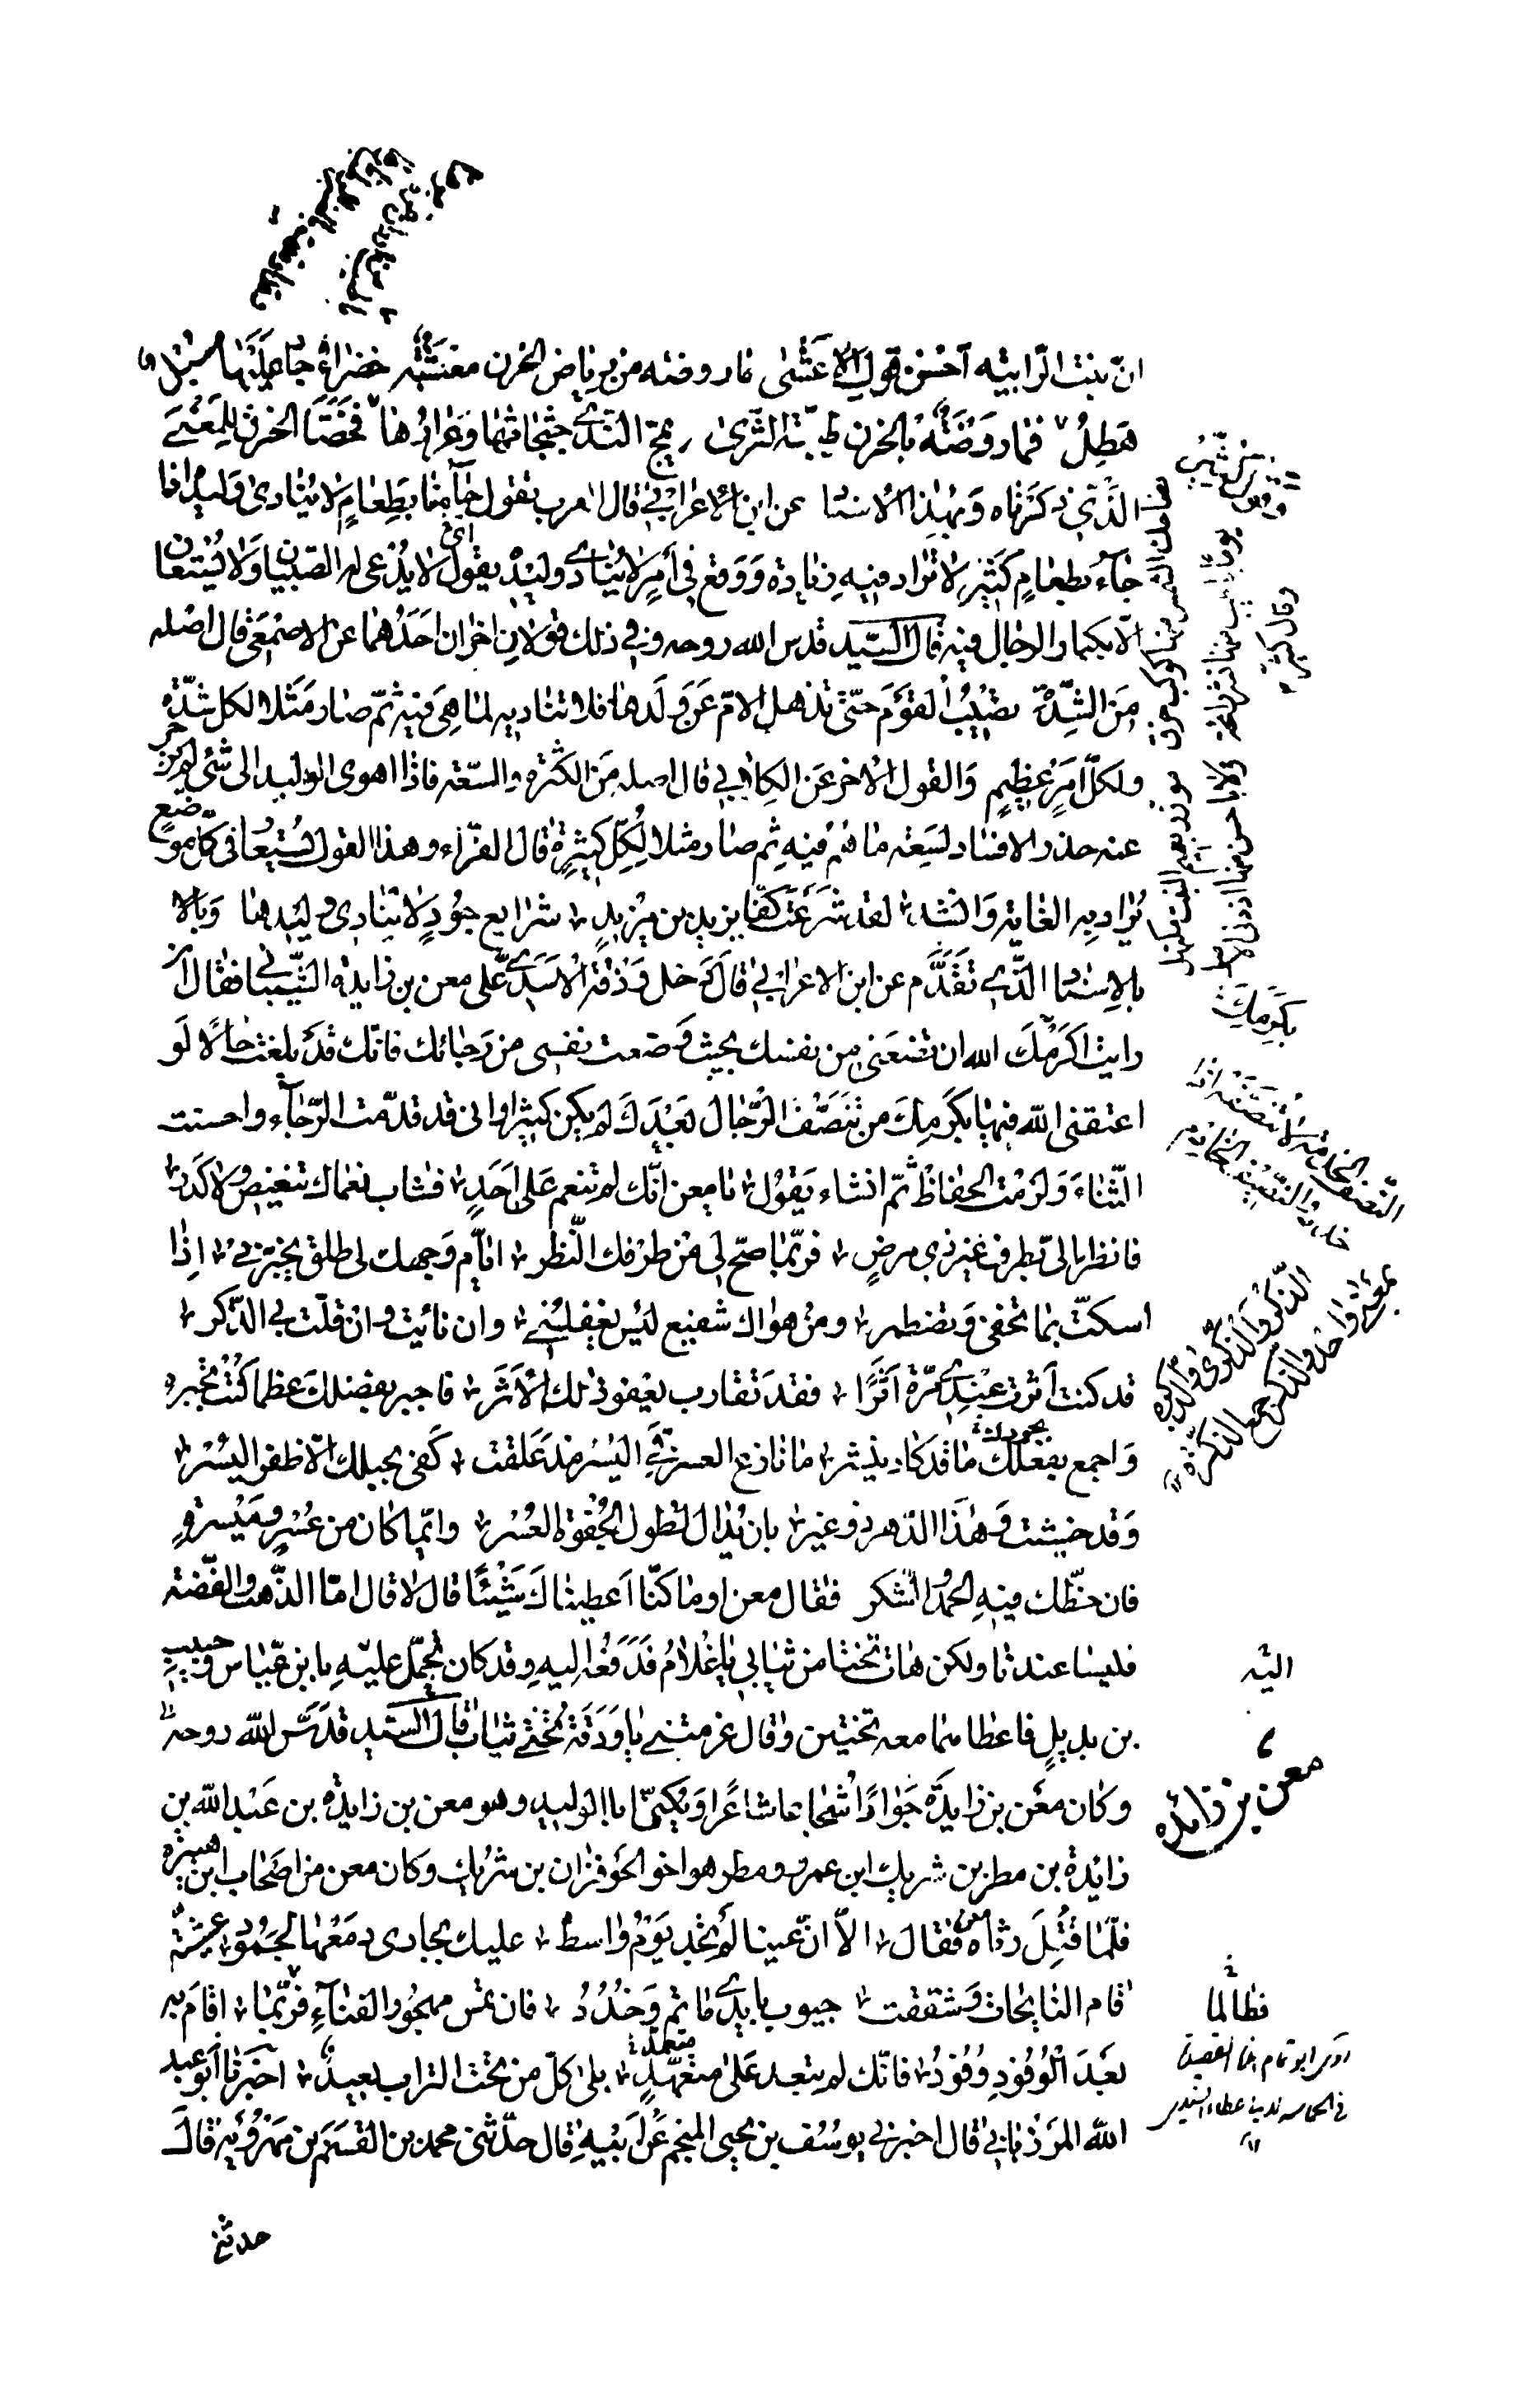 انّ بنت الرّابية احسن قول الاعشى ما روضه من رياض الحزن معشبة خضراء جاد عليها مسبل
هَطِلُ فما روضة بالحزن طيّبة الثّرى يمجّ النّدى جثجاثها وعرارها فخصّا الحزن للمعنى
الّذي ذكرناه وبهذا الاسنا عن ابن الاعرابي قال العرب تقول جاءنا بطعامٍ لا ينادى وليده اذا
جاء بطعامٍ كثيرٍ لا يراد فيه زيادة ووقع في امرٍ لا ينادى وليده يقول اى لا يدعى له الصّبيان ولا يستعان
الّا بكبار الرجال فيه قال السّيد قدس الله روحه وفي ذلك قولان اخران احدهما عن الاصمعى قال اصله
من الشّدّة تصيب القوم حتّى تذهل الامّ عن ولدها فلا تناديه لما هى فيه ثمّ صار مثلا لكل شدّة
ولكلّ امرٍ عظيمٍ والقول الاخر عن الكلابي قال اصله من الكثرة والسّعة فاذا اهوى الوليد الى شئ لم يزجر
عنه حذر الافساد لسعة ما هم فيه ثم صار مثلا لكلّ كثيرة قال الفرّاء وهذا القول يستعان في كلّ موضع
يراد به الغاية وانشد لقد شرعت كفّا يزيد بن مزيد شرايع جودٍ لا ينادى وليدها وبالا
بالاسنا الّذي تقدّم عن ابن الاعرابي قال دخل وذقة الاسدى على معن بن زايدة الشّيباني فقال ان
رايت اكرمك الله ان تضعنى من نفسك بحيث وضعت نفسى من رجائك فانّك قد بلغت حالًا لو
اعتقنى الله فيها بكرمك من تنصّف الرّجال بعدك لم يكن كثيرا وانى قد قدّمت الرّجاء واحسنت
الثّناء ولزمت الحفاظ ثمّ انشاء يقول يا معن انّك لم تنعم على احدٍ فشاب نعماك تنغيص ولا كدر
فانظر الىّ بطرف غير ذى مرضٍ فربّما صحّ لى من طرفك النّظر ايّام وجهك لى طلق يخبّرنى اذا
اسكتّ بما تخفى وتضطمر ومن هواك شفيع ليس يغفلنى وان نائيت وان قلّت بى الذّكر
قد كنت اثّرت عندى مرّة اثرًا فقد تقارب يعفو ذلك الاثر فاجبر بفضلك عظما كنت تجبره
واجمع بفعلك بجودك ما قد كاد ينثر ما نازع العسر فيّ اليسر مذ علقت كفى بحبلك الّا ظفر اليسر
وقد خشيت وهذا الدّهر ذو غير بان يدال لطول الجفوة العسر وانّما كان من عسر وميسرةٍ
فان حظّك فيه الحمد والشكر فقال معن او ما كنّا اعطيناك شيئًا قال لا قال امّا الذّهب والفضّة
فليسا عندنا ولكن هات تختا من ثيابى يا غلام فدفعه اليه وقد كان تحمّل عليه بابن عيّاس وحبيب
بن بديلٍ فاعطاهما معه تختين وقال غرمتنى يا وذقة تختى ثياب قال السّيد قدّس الله روحه
وكان معن بن زايدة جوادًا شجاعا شاعرًا ويكنّى ابا الوليد وهو معن بن زايدة بن عبد الله بن
زائدة بن مطر بن شريك ابن عمرو ومطر هو اخو الحوفزان بن شريك وكان معن من اصحاب ابن هبيرة
فلمّا قتل رثاه معن فقال الا انّ عينا لم تجد يوم واسط عليك بجارى دمعها لجمود عشيّة
قام النايحات وشققت جيوب بايدى ماتم وخدود فان تمس مهجور الفناء فربّما اقام به
بعد الوفود وفود فانّك لم تبعد على متعهّد بلى كلّ من تحت التراب بعيد اخبرنا ابو عبد
الله المرزباني قال اخبرني يوسف بن يحيى المنجم عن ابيه قال حدّثنى محمد بن القسم بن مهرويه قال
حدثنى
وقال كثير
بكرمك
الذّكر والذّكرى والذّكرة
بمعنى واحد والذّكر جمع الذّكرة
اليه
معن بن زائده
فطالما
روى ابو تمام هذا القصيدة
في الحماسه لابى عطاء السندى